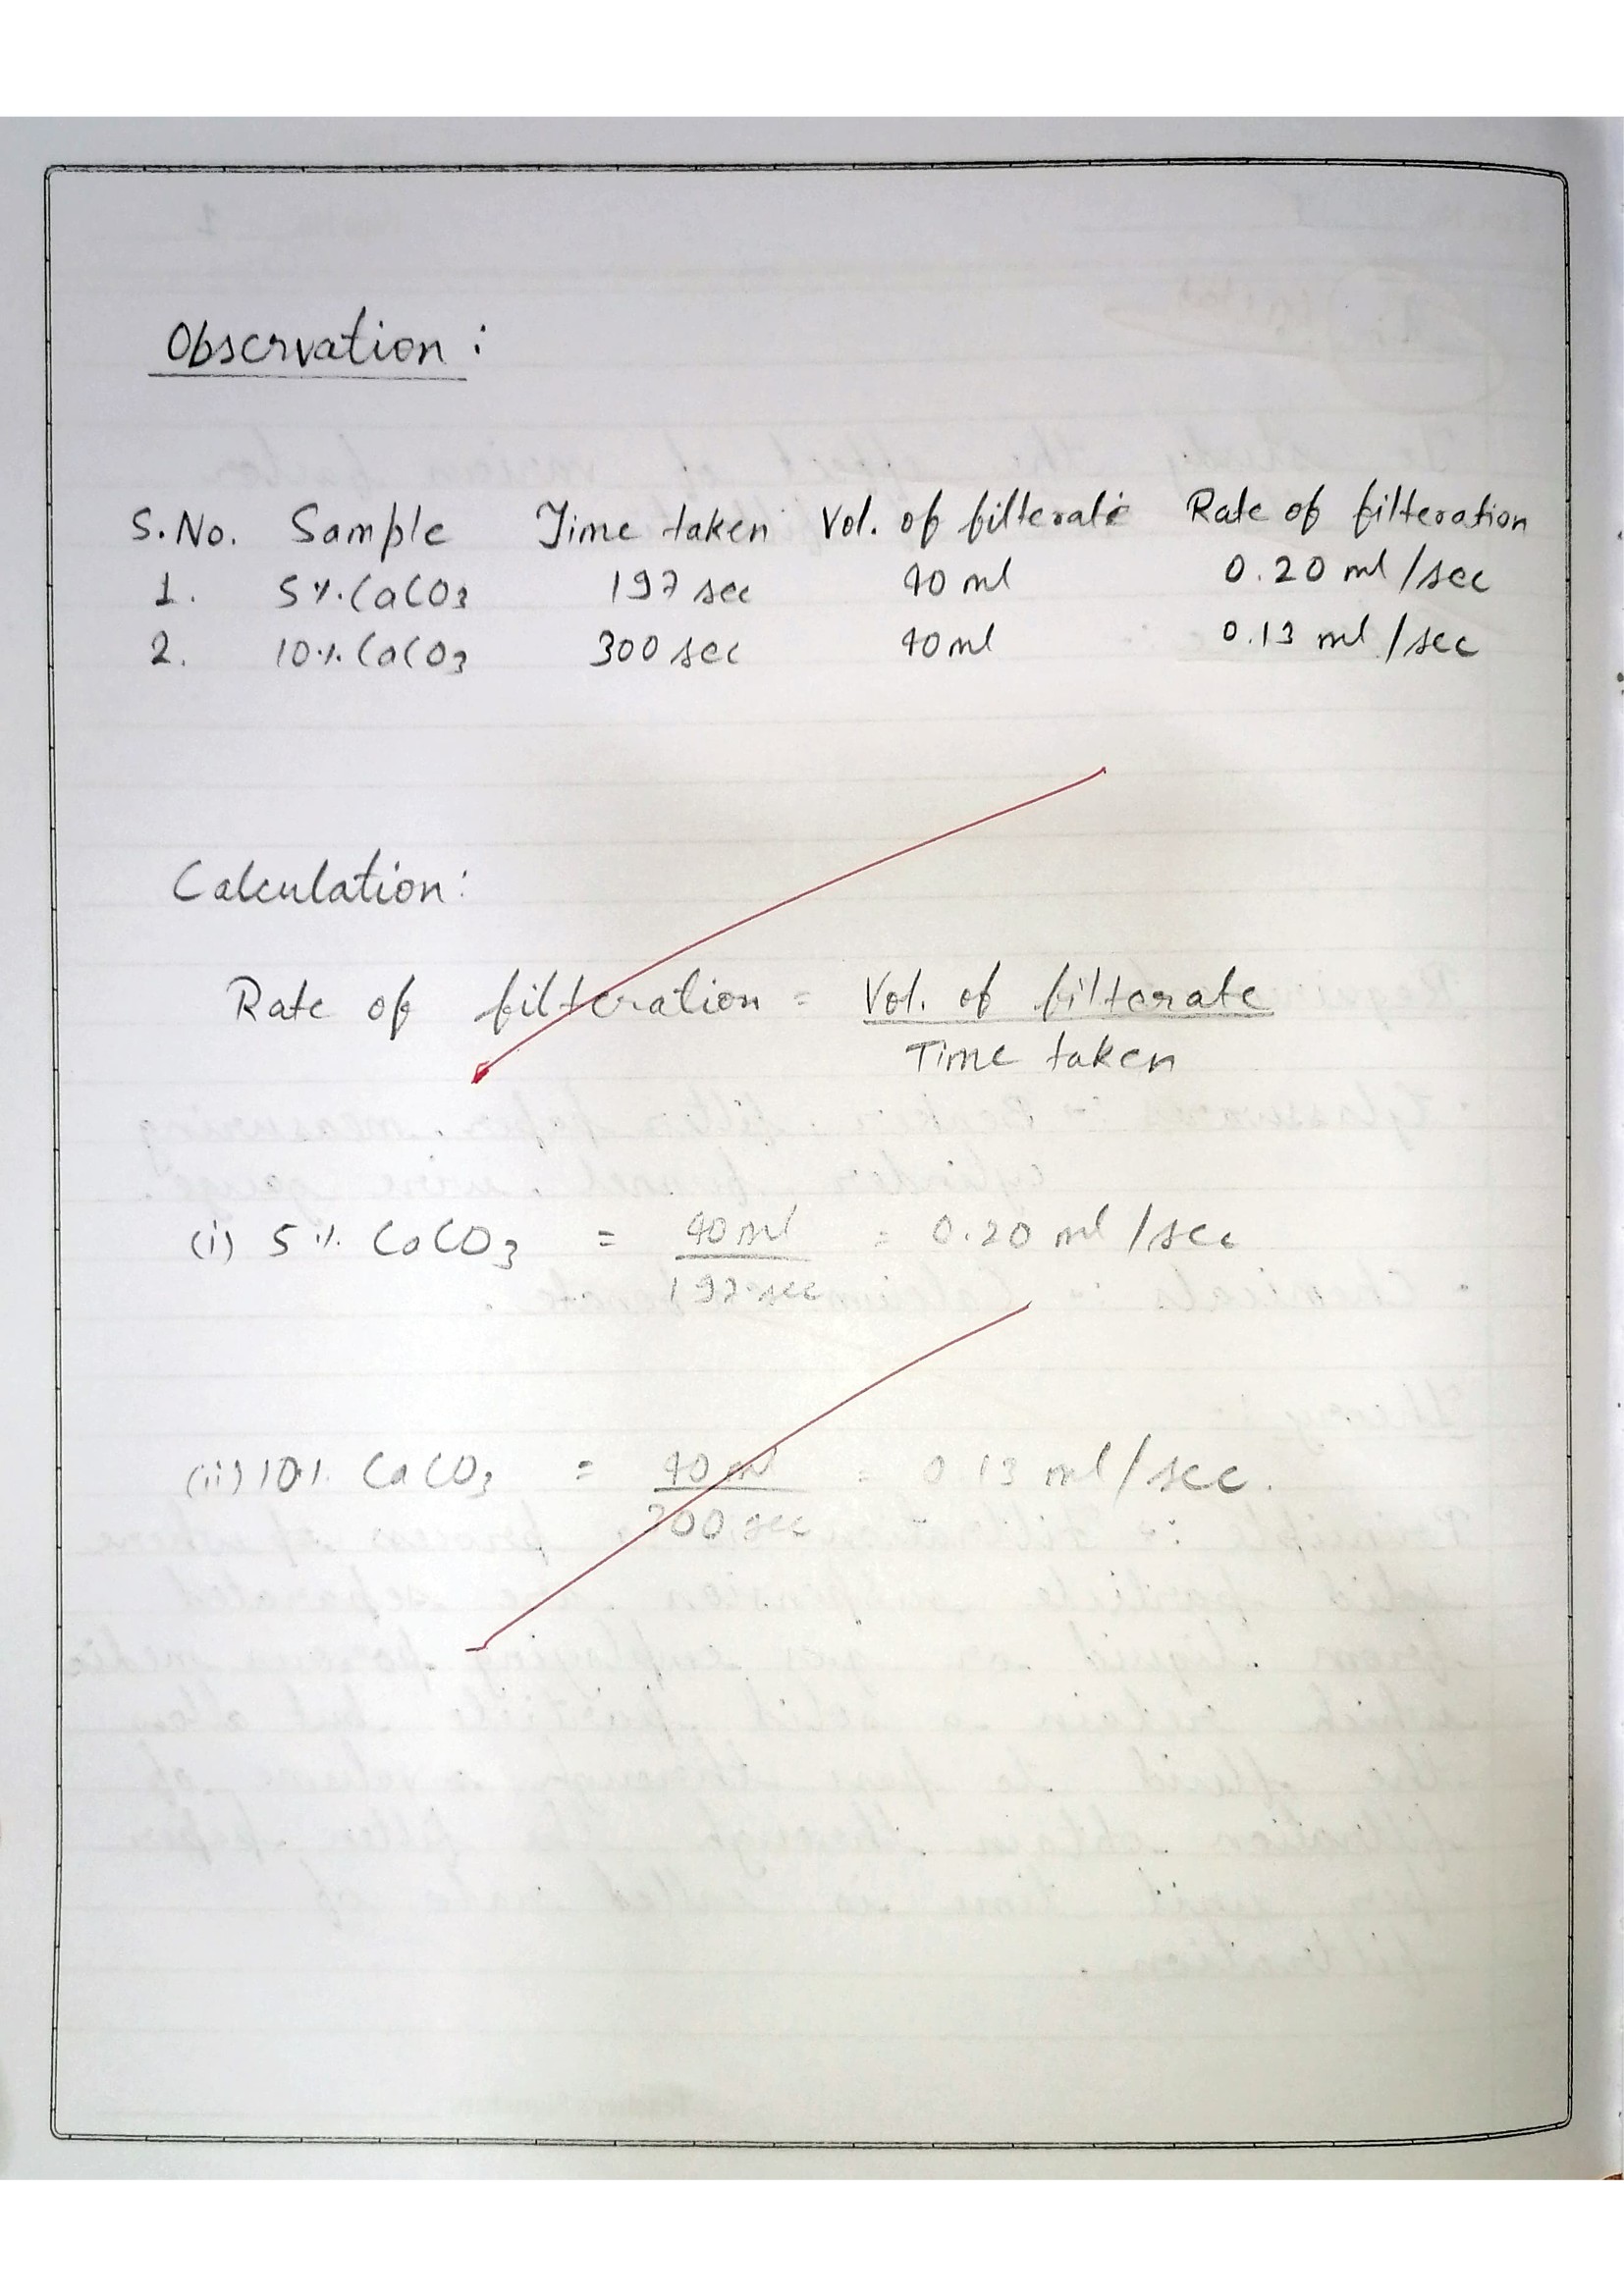 Observation :
S.No. Sample Time taken Vol. of filterate Rate of filteration
1. 5% CaCO3 197 sec 40 ml 0.20 ml/sec
2. 10% CaCO3 300 sec 40 ml 0.13 ml/sec
Calculation:
Rate of filteration = Vol. of filterate
Time taken
(i) 5% CaCO3 = 40 ml = 0.20 ml/sec
197 sec
(ii) 10% CaCO3 = 40 ml = 0.13 ml/sec.
300 sec